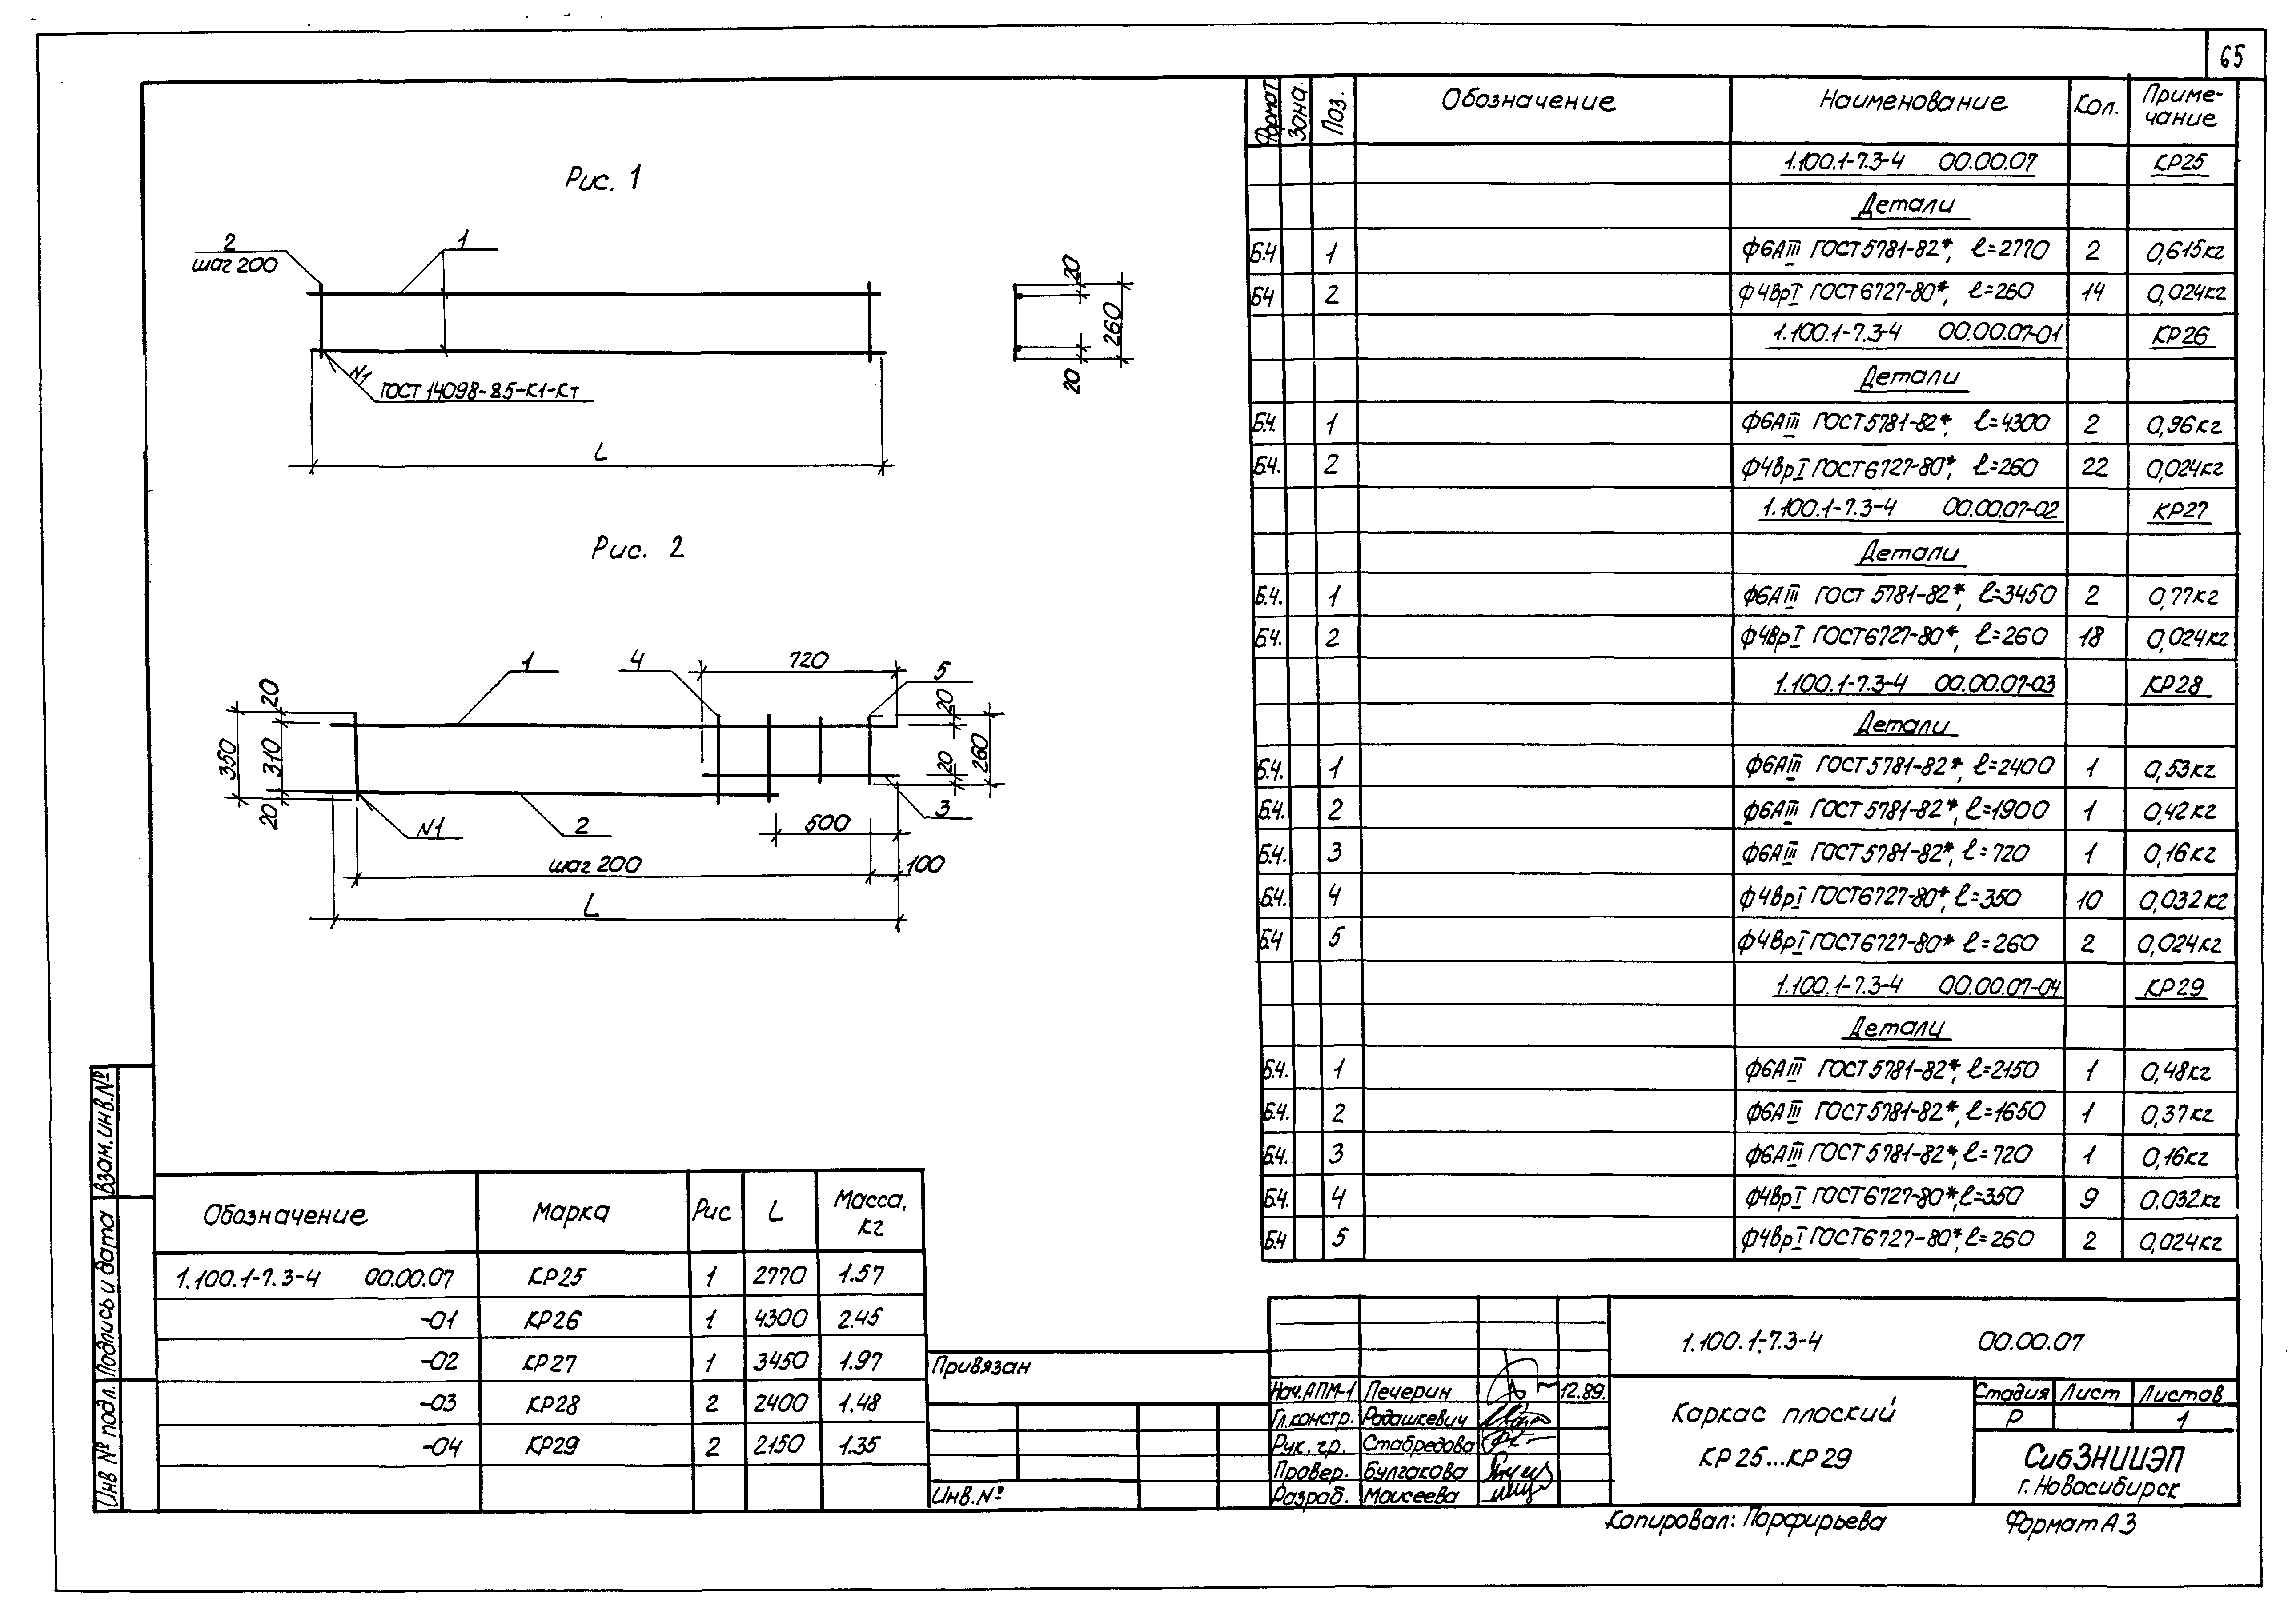 65
Рис. 1
2
шаг 200
1
N1
ГОСТ 14098-85-К1-Кт
L
20
260
20
Рис. 2
1
4
720
5
20
350
310
20
20
260
20
3
N1
2
500
шаг 200
100
L
Формат. Зона. Поз. Обозначение Наименование Кол. Приме-
чание
1.100.1-7.3-4 00.00.07 КР25
Детали
Б.4 1 Ф6АIII ГОСТ 5781-82*, ℓ=2770 2 0,615кг
Б4 2 Ф4ВрI ГОСТ 6727-80*, ℓ=260 14 0,024кг
1.100.1-7.3-4 00.00.07-01 КР26
Детали
Б.4. 1 Ф6АIII ГОСТ 5781-82*, ℓ=4300 2 0,96кг
Б.4. 2 Ф4ВрI ГОСТ 6727-80*, ℓ=260 22 0,024кг
1.100.1-7.3-4 00.00.07-02 КР27
Детали
Б.4. 1 Ф6АIII ГОСТ 5781-82*, ℓ=3450 2 0,77кг
Б.4. 2 Ф4ВрI ГОСТ 6727-80*, ℓ=260 18 0,024кг
1.100.1-7.3-4 00.00.07-03 КР28
Детали
Б.4. 1 Ф6АIII ГОСТ 5781-82*, ℓ=2400 1 0,53кг
Б.4. 2 Ф6АIII ГОСТ 5781-82*, ℓ=1900 1 0,42кг
Б.4. 3 Ф6АIII ГОСТ 5781-82*, ℓ=720 1 0,16кг
Б.4. 4 Ф4ВрI ГОСТ 6727-80*, ℓ=350 10 0,032кг
Б.4 5 Ф4ВрI ГОСТ 6727-80* ℓ=260 2 0,024кг
1.100.1-7.3-4 00.00.07-04 КР29
Детали
Б.4. 1 Ф6АIII ГОСТ 5781-82*, ℓ=2150 1 0,48кг
Б.4. 2 Ф6АIII ГОСТ 5781-82*, ℓ=1650 1 0,37кг
Б.4. 3 Ф6АIII ГОСТ 5781-82*, ℓ=720 1 0,16кг
Б.4. 4 Ф4ВрI ГОСТ 6727-80*, ℓ=350 9 0.032кг
Б.4 5 Ф4ВрI ГОСТ 6727-80*, ℓ=260 2 0,024кг
Обозначение Марка Рис L Масса,
кг
1.100.1-7.3-4 00.00.07 КР25 1 2770 1.57
-01 КР26 1 4300 2.45
-02 КР27 1 3450 1.97
-03 КР28 2 2400 1.48
-04 КР29 2 2150 1.35
Взам.инв.№
Подпись и дата
Инв № подл.
Привязан
Инв.№
Нач.АПМ-1 Печерин 12.89.
Гл.констр. Радашкевич
Рук. гр. Стабредова
Провер. Булгакова
Разраб. Моисеева
1.100.1-7.3-4 00.00.07
Каркас плоский
КР25...КР29
Стадия Лист Листов
Р 1
СибЗНИИЭП
г. Новосибирск
Копировал: Порфирьева
Формат А3